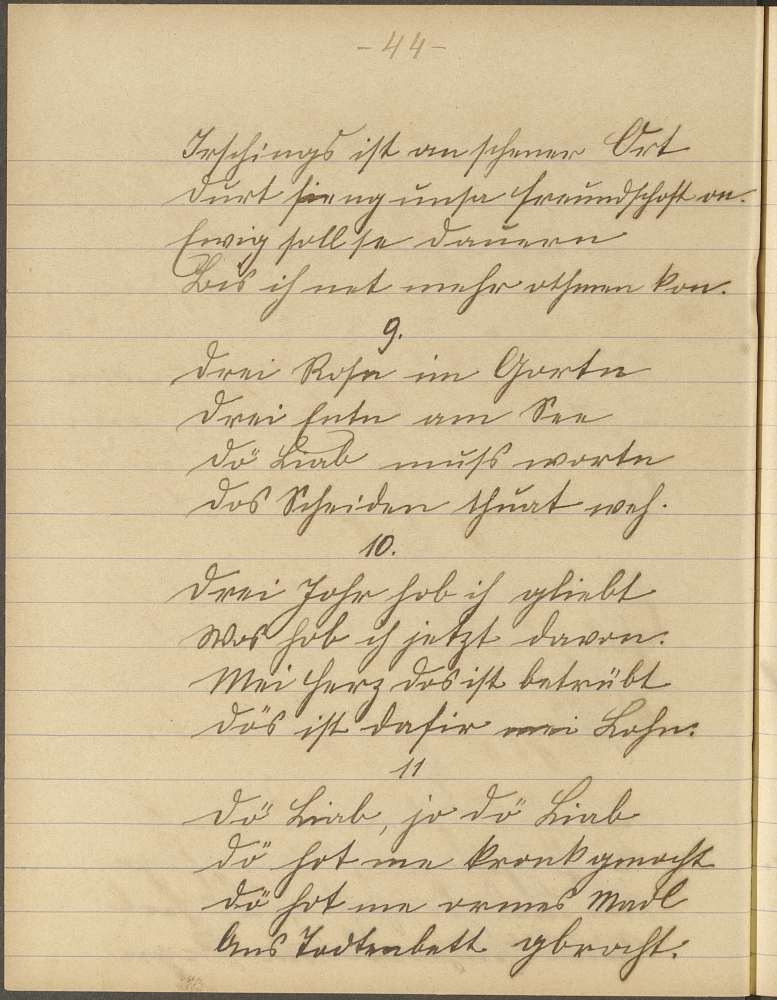 - 44 -
Irschings ist an schener Ort
Durt fieng unsa Freundschoft on.
Ewig soll se dauern
Bis ich net mehr othmen kon.
9.
Drei Rosn im Gortn
Drei Entn am See
Dö Liab muss wortn
Dos Scheiden thuat weh.
10.
Drei Johr hob ich gliebt
Wos hob ich jetzt davon.
Mei Herz dos ist betrübt
Dös ist dafir mei Lohn.
11
Dö Liab, jo dö Liab
Dö hot me kronk gmocht
Dö hot me ormes Madl
Ans Todtenbett gbrocht.